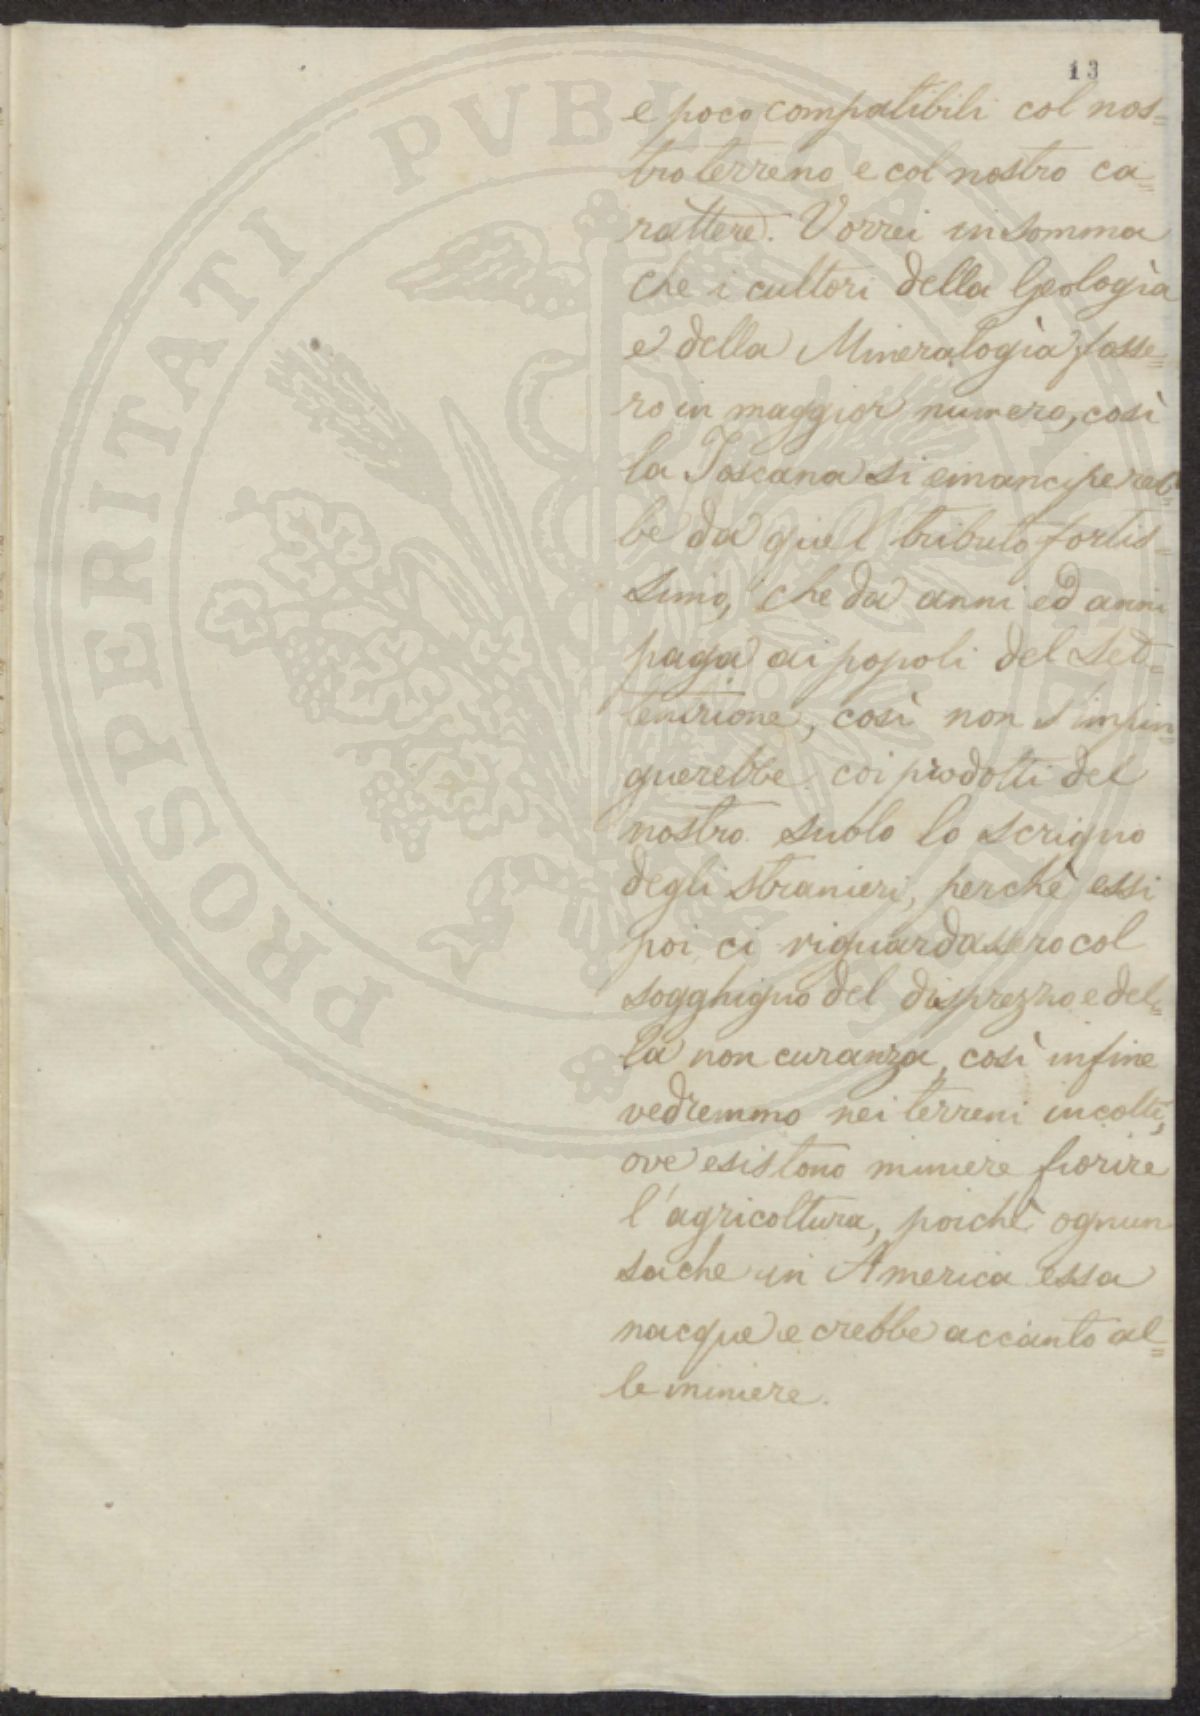 13
e poco compatibili col nos=
tro terreno e col nostro ca=
rattere. Vorrei insomma
che i cultori della Geologia
e della Mineralogia fosse=
ro in maggior numero, così
la Toscana si emancipereb=
be da quel tributo fortis=
simo, che da anni ed anni
paga ai popoli del Set=
tentrione, così non s'impin=
guerebbe coi prodotti del
nostro suolo lo scrigno
degli stranieri, perchè essi
poi ci riguardassero col
sogghigno del disprezzo e del=
la non curanza, così infine
vedremmo nei terreni incolti,
ove esistono miniere fiorire
l'agricoltura, poichè ognun
sa che in America essa
nacque e crebbe accanto al=
le miniere.
PROSPERITATI PVBLICAE